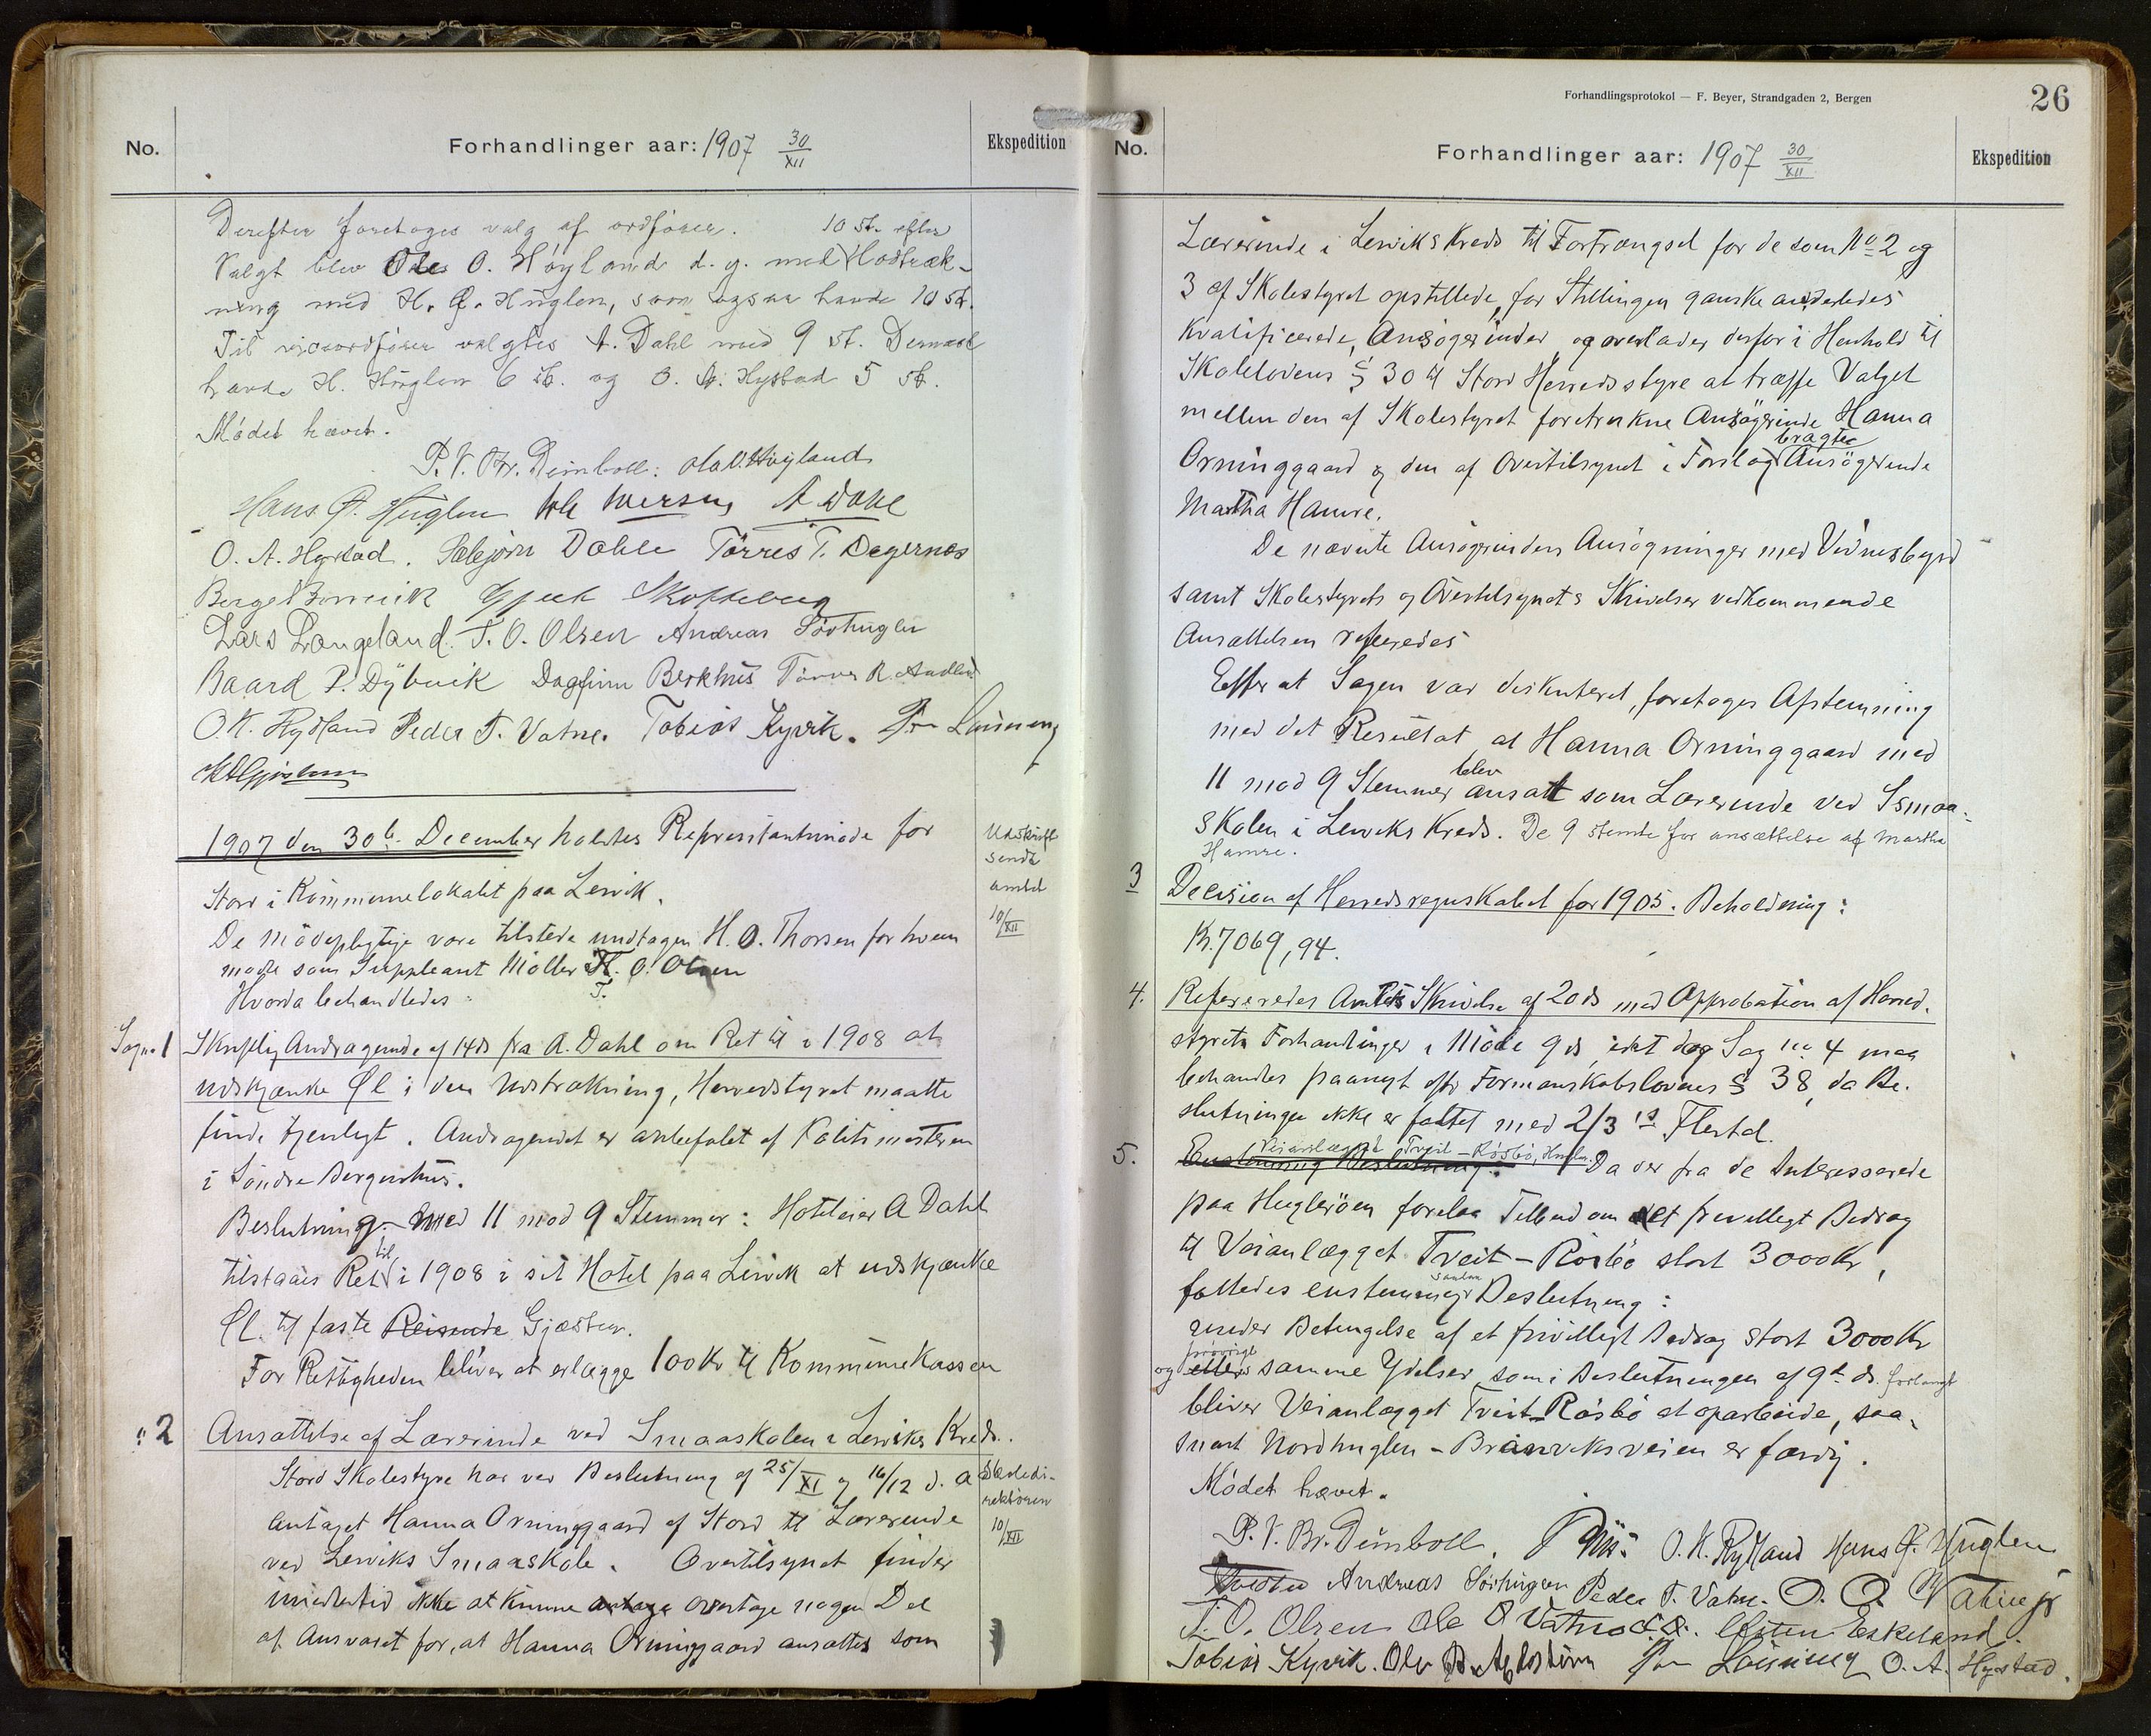 No.
Forhandlinger aar: 1907 30/XII
Ekspedition
Derefter foretoges valg af ordfører.
Valgt blev Ole O. Høyland d. y. med 10 st. efter Lodtræk-
ning med H. Q. Huglen, som ogsaa havde 10 st.
Til viceordfører valgtes A. Dahl med 9 st. Dernæst
havde H. Huglen 6 st. og O. A. Hystad 5 st.
Mødet hævet.
P. V. Br. Deinboll. Ola O. Høyland
Hans Q. Huglen A. Dahl
O. A. Hystad. Sæbjørn Dahle Tørres T. Degernæs
Gjert Skotteberg
Lars Langeland. T. O. Olsen Andreas Sørhuglen
Baard P. Dybvik Dagfinn Berkhus Tørres R.
O. K. Rydland Peder T. Vatne. Tobias Kyvik.
1907 den 30te December holdtes Repræsentantmøde for
Stord i Kommunelokalet paa Lervik.
De mødepligtige vare tilstede undtagen H. O. Thorsen for hvem
mødte som Suppleant Møller T. O. Olsen
Hvorda behandledes:
Udskrift
sendt
amtet
10/XII
Sag no 1 Skriftlig Andragende af 14 ds fra A. Dahl om Ret til i 1908 at
udskjænke Øl i den Udstrækning, Herredstyret maatte
finde tjenligt. Andragendet er anbefalet af Politimesteren
i Søndre Bergenhus.
Beslutning. Med 11 mod 9 Stemmer: Hoteleier A Dahl
tilstaaes Ret til i 1908 i sit Hotel paa Lervik at udskjænke
Øl til faste Reisende Gjæster.
For Rettigheden bliver at erlægge 100 Kr til Kommunekassen
" 2 Ansættelse af Lærerinde ved Smaaskolen i Lerviks Kreds.
Stord Skolestyre har ved Beslutning af 25/XI og 16/12 d. a.
antaget Hanna Orninggaard af Stord til Lærerinde
ved Lerviks Smaaskole. Overtilsynet finder
imidlertid ikke at kunne antage overtage nogen Del
af Ansvaret for, at Hanna Orninggaard ansættes som
Skoledi-
rektøren
10/XII
Forhandlingsprotokol — F. Beyer, Strandgaden 2, Bergen
26
No.
Forhandlinger aar: 1907 30/XII
Ekspedition
Lærerinde i Lerviks Kreds til Fortrængsel for de som No 2 og
3 af Skolestyret opstillede, for Stillingen ganske anderledes
kvalificerede, Ansøgerinder, og overlader derfor i Henhold til
Skolelovens § 30 til Stord Herredsstyre at træffe Valget
mellem den af Skolestyret foretrukne Ansøgerinde Hanna
Orninggaard og den af Overtilsynet i Forslag bragte Ansøgerinde
Martha Hamre.
De nævnte Ansøgerinders Ansøgninger med Vidnesbyrd
samt Skolestyrets og Overtilsynets Skrivelser vedkommende
Ansættelsen refereredes
Efter at Sagen var diskuteret, foretoges Afstemning
med det Resultat, at Hanna Orninggaard med
11 mod 9 Stemmer blev ansatt som Lærerinde ved Smaa-
skolen i Lerviks Kreds. De 9 stemte for ansættelse af Martha
Hamre.
3 Decision af Herredsregnskabet for 1905. Beholdning:
Kr. 7069,94.
4. Refereredes Amtets Skrivelse af 20 ds med Approbation af Herred-
styrets Forhandlinger i Møde 9 ds, idet dog Sag no 4 maa
behandles paanyt efter Formanskabslovens § 38, da Be-
slutningen ikke er fattet med 2/3 is Flertal.
5. Enstemmig Beslutning: Veianlægget Tveit-Røsbø, Huglen. Da der fra de Interesserede
paa Hugleøen forelaa Tilbud om et frivilligt Bidrag
til Veianlægget Tveit-Røsbø stort 3000 Kr,
fattedes enstemmig saadan Beslutning:
Under Betingelse af et frivilligt Bidrag stort 3000 Kr
og forøvrigt samme Ydelser som i Beslutningen af 9de ds. forlangt
bliver Veianlægget Tveit-Røsbø at oparbeide, saa-
snart Nordhuglen-Brandviksveien er færdig.
Mødet hævet.
P. V. Br. Deinboll. O. K. Rydland Hans Q. Huglen
Andreas Sørhuglen Peder T. Vatne. O. O. Vatne jr
T. O. Olsen Ole O Vatne Østen Eskeland.
Tobias Kyvik. O. A. Hystad.